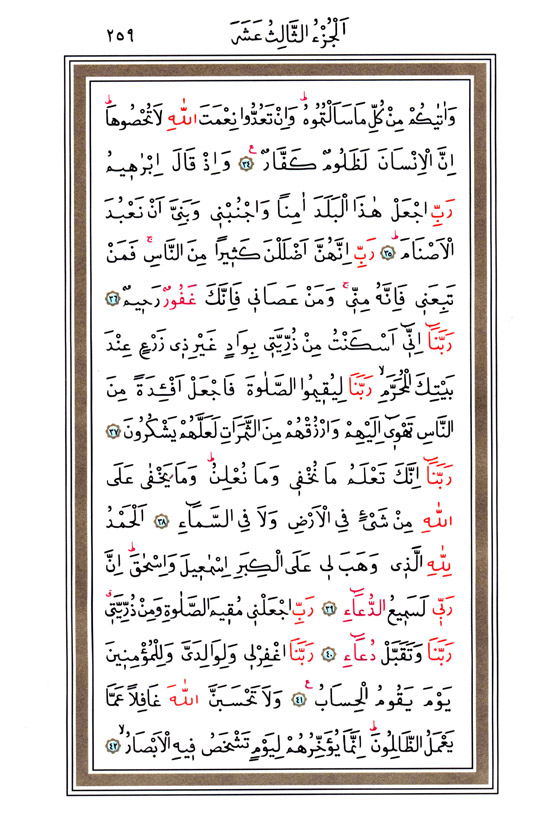 اَلْجُزْءُ الثَّالِثُ عَشَرَ ٢٥٩
وَاٰتٰيكُمْ مِنْ كُلِّ مَا سَاَلْتُمُوهُۜ وَاِنْ تَعُدُّوا نِعْمَتَ اللّٰهِ لَا تُحْصُوهَاۜ
اِنَّ الْاِنْسَانَ لَظَلُومٌ كَفَّارٌ۟ ﴿٣٤﴾ وَاِذْ قَالَ اِبْرٰه۪يمُ
رَبِّ اجْعَلْ هٰذَا الْبَلَدَ اٰمِناً وَاجْنُبْن۪ي وَبَنِيَّ اَنْ نَعْبُدَ
الْاَصْنَامَۜ ﴿٣٥﴾ رَبِّ اِنَّهُنَّ اَضْلَلْنَ كَث۪يراً مِنَ النَّاسِۚ فَمَنْ
تَبِعَن۪ي فَاِنَّهُ مِنّ۪يۚ وَمَنْ عَصَان۪ي فَاِنَّكَ غَفُورٌ رَح۪يمٌ ﴿٣٦﴾
رَبَّنَٓا اِنّ۪ٓي اَسْكَنْتُ مِنْ ذُرِّيَّت۪ي بِوَادٍ غَيْرِ ذ۪ي زَرْعٍ عِنْدَ
بَيْتِكَ الْمُحَرَّمِۙ رَبَّنَا لِيُق۪يمُوا الصَّلٰوةَ فَاجْعَلْ اَفْـِٔدَةً مِنَ
النَّاسِ تَهْو۪ٓي اِلَيْهِمْ وَارْزُقْهُمْ مِنَ الثَّمَرَاتِ لَعَلَّهُمْ يَشْكُرُونَ ﴿٣٧﴾
رَبَّنَٓا اِنَّكَ تَعْلَمُ مَا نُخْف۪ي وَمَا نُعْلِنُۜ وَمَا يَخْفٰى عَلَى
اللّٰهِ مِنْ شَيْءٍ فِي الْاَرْضِ وَلَا فِي السَّمَٓاءِ ﴿٣٨﴾ اَلْحَمْدُ
لِلّٰهِ الَّذ۪ي وَهَبَ ل۪ي عَلَى الْكِبَرِ اِسْمٰع۪يلَ وَاِسْحٰقَۜ اِنَّ
رَبّ۪ي لَسَم۪يعُ الدُّعَٓاءِ ﴿٣٩﴾ رَبِّ اجْعَلْن۪ي مُق۪يمَ الصَّلٰوةِ وَمِنْ ذُرِّيَّت۪يۗ
رَبَّنَا وَتَقَبَّلْ دُعَٓاءِ ﴿٤٠﴾ رَبَّنَا اغْفِرْ ل۪ي وَلِوَالِدَيَّ وَلِلْمُؤْمِن۪ينَ
يَوْمَ يَقُومُ الْحِسَابُ۟ ﴿٤١﴾ وَلَا تَحْسَبَنَّ اللّٰهَ غَافِلاً عَمَّا
يَعْمَلُ الظَّالِمُونَۜ اِنَّمَا يُؤَخِّرُهُمْ لِيَوْمٍ تَشْخَصُ ف۪يهِ الْاَبْصَارُۙ ﴿٤٢﴾